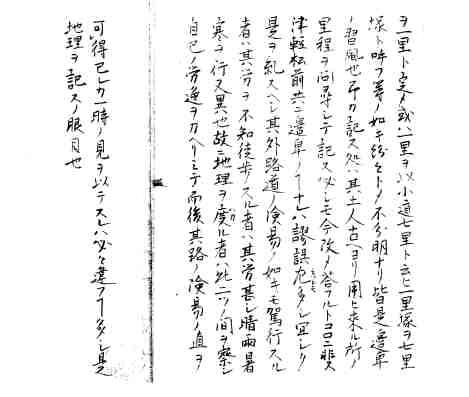 ヲ一里ト定メ或ハ一里ヲ以小道七里ト云ヒ一里塚ヲ七里
塚ト呼フ等ノ如キ紛々トノ不分明ナリ皆是邊卑
ノ習風也吊カ記ス処ハ其土人古ヘヨリ用ヒ来ル所ノ
里程ヲ問尋シテ記ス必シモ今改メ合フルトコロニ非ス
津軽松前共ニ邊卑ノ了ナレハ謬誤尤多シ宜シク
是ヲ糺スヘシ其外路道ノ険易ノ如キモ駕行スル
者ハ其労ヲ不知徒歩スル者ハ其労甚シ晴雨暑
寒ヲ行又異也故ニ地理ヲ度ル者ハ此二ツノ間ヲ察シ
自己ノ労逸ヲカヘリミテ而後其路ノ険易ノ直ヲ
可得已レカ一時ノ見ヲ以テスレハ必ス違フ了多シ是
地理ヲ記スノ眼目也